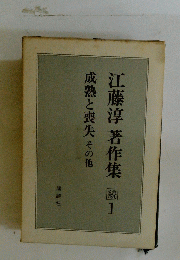 江藤淳著作集 続 1
成熟と喪失 その他
講談社